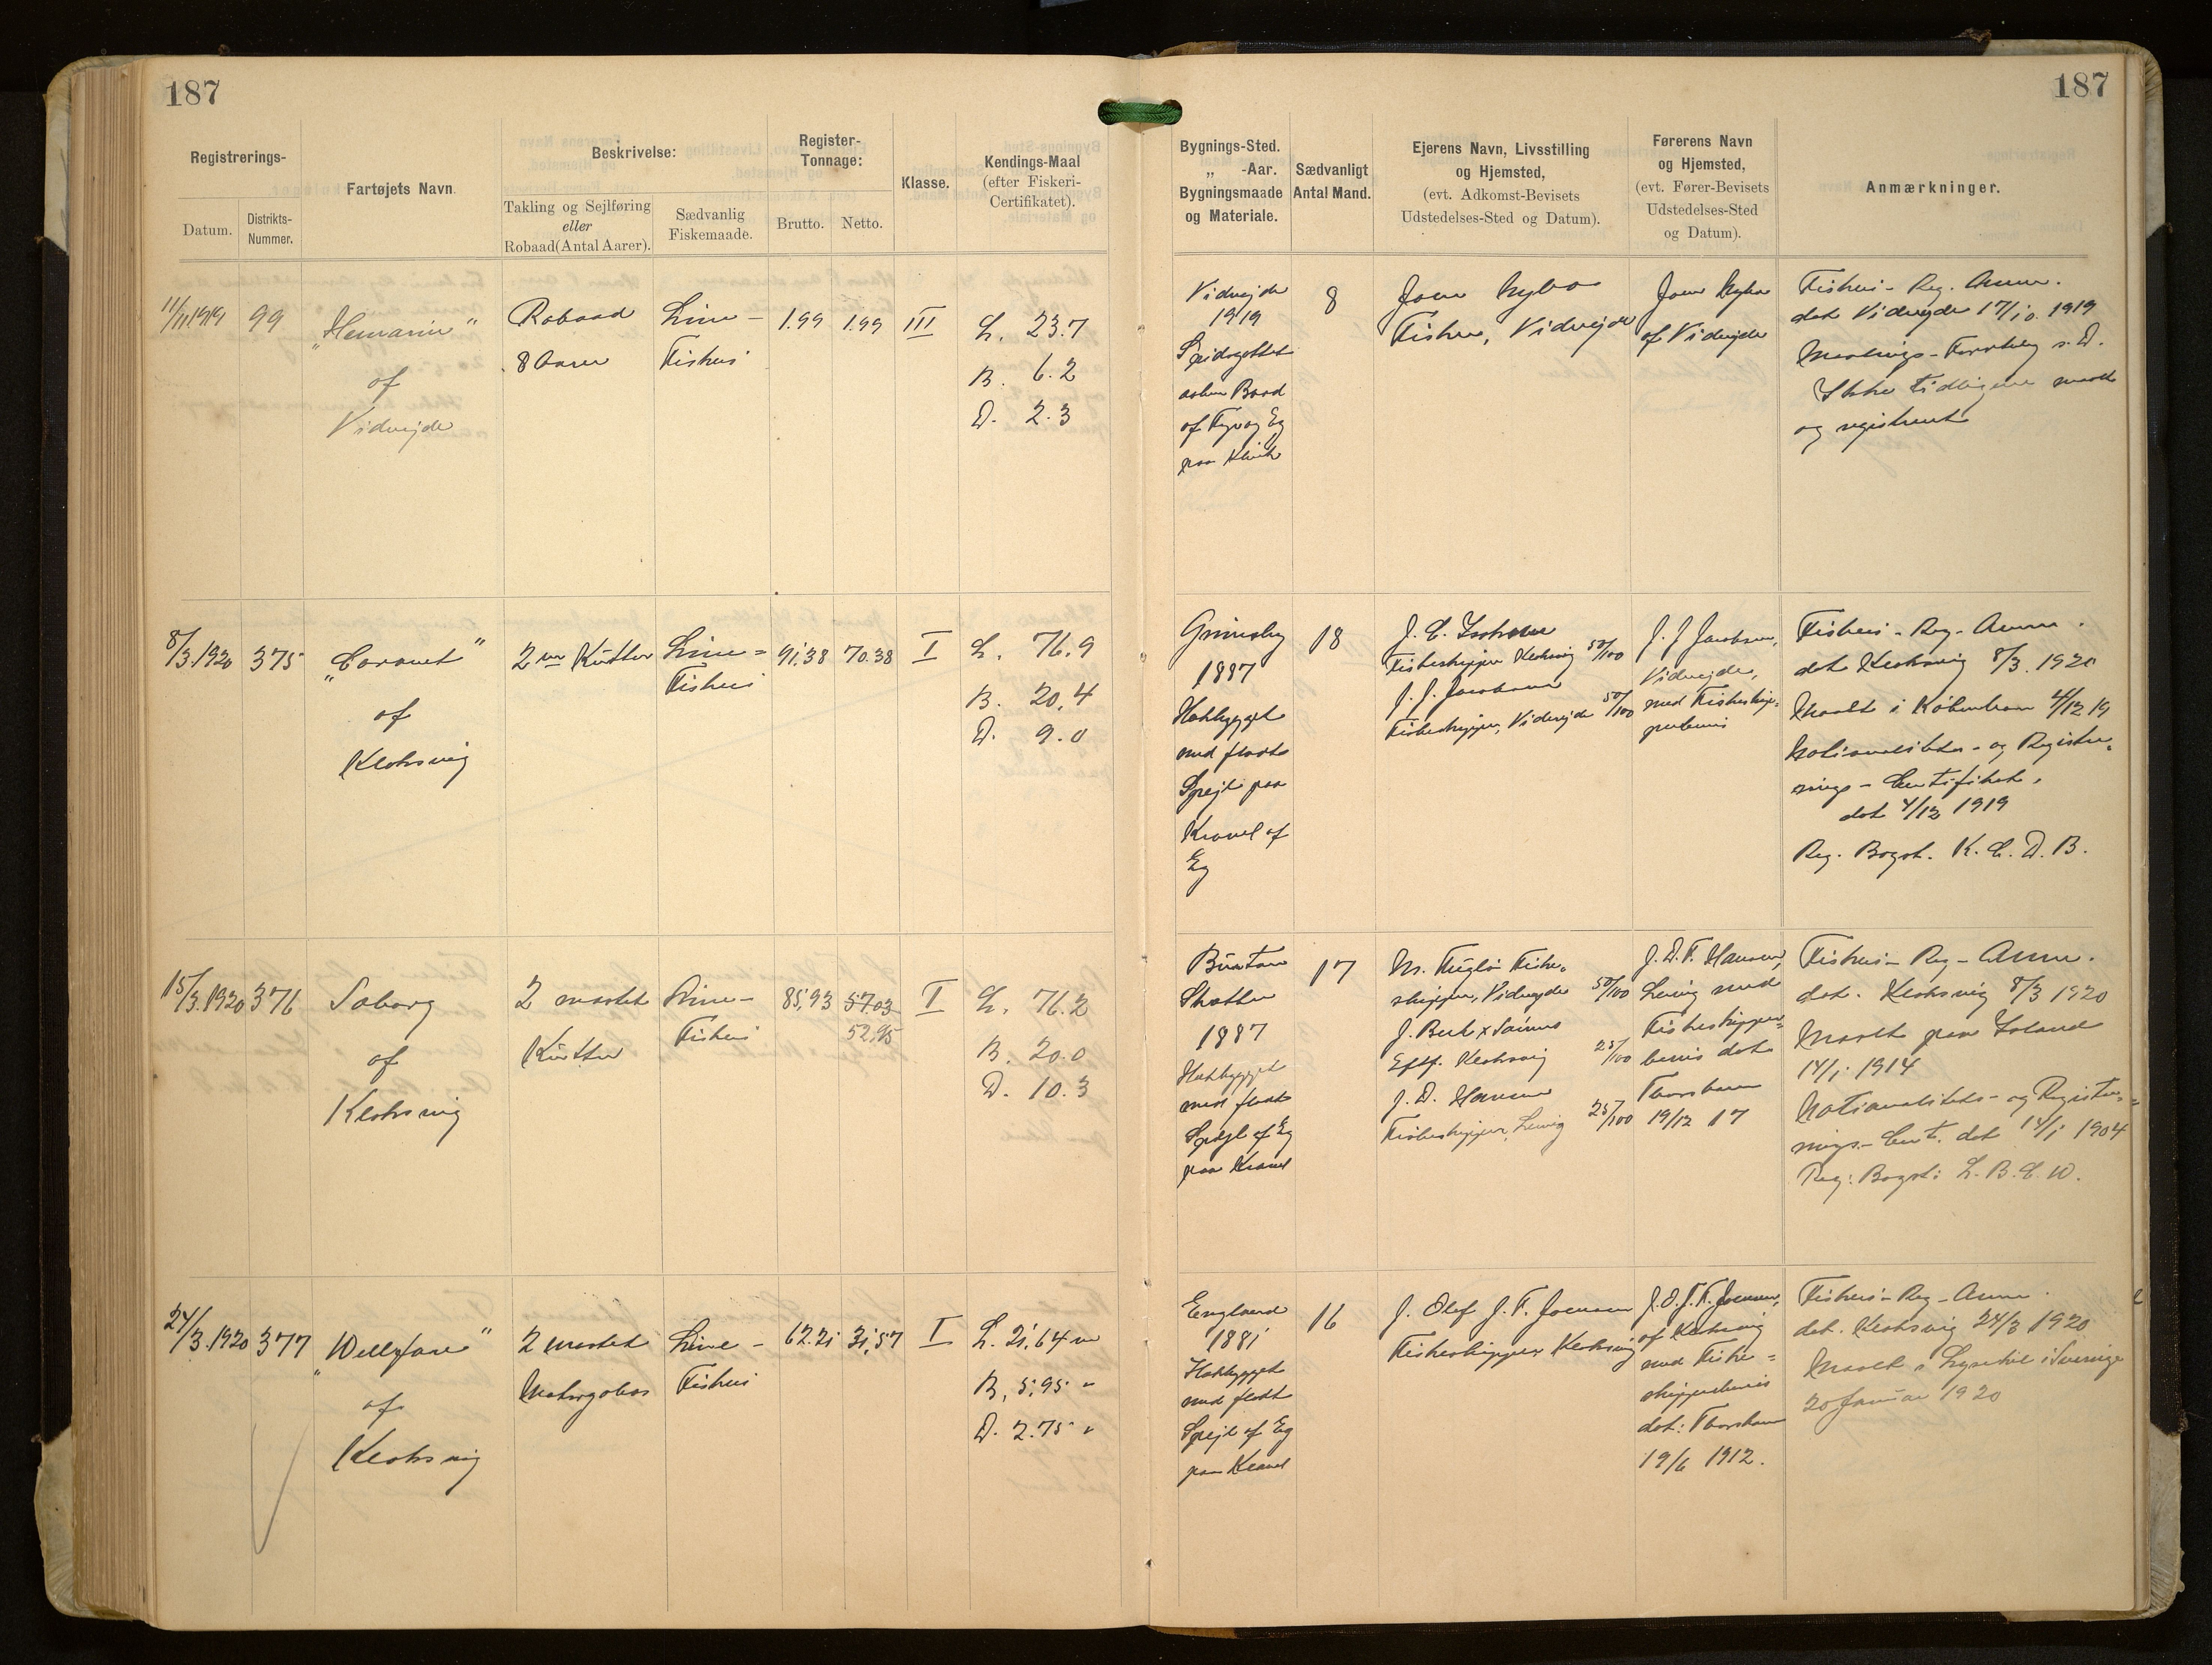 187
187
Registrerings-
Datum.
Distrikts-
Nummer.
Fartøjets Navn.
Beskrivelse:
Takling og Sejlføring
eller
Robaad (Antal Aarer).
Sædvanlig
Fiskemaade.
Register-
Tonnage:
Brutto.
Netto.
Klasse.
Kendings-Maal
(efter Fiskeri-
Certifikatet).
Bygnings-Sted.
„ -Aar.
Bygningsmaade
og Materiale.
Sædvanligt
Antal Mand.
Ejerens Navn, Livsstilling
og Hjemsted,
(evt. Adkomst-Bevisets
Udstedelses-Sted og Datum).
Førerens Navn
og Hjemsted,
(evt. Fører-Bevisets
Udstedelses-Sted
og Datum).
Anmærkninger.
11/11 1919
99
af
Vidvejde
Robaad
8 Aarer
Line-
Fiskeri
1.99
1.99
III
L. 23.7
B. 6.2
D. 2.3
Vidvejde
1919
aaben Baad
af Fyr og Eg
paa Klink
8
Joen
Fisker, Vidvejde
Joen
af Vidvejde
Fiskeri-Reg. Anm.
dat Vidvejde 17/10 1919
s. D.
Ikke tidligere maalt
og registreret
8/3.1920
375
„Coronet"
af
Klaksvig
2 m Kutter
Line=
Fiskeri
91.38
70.38
I
L. 76.9
B. 20.4
D. 9.0
Grimsby
1887
Hækbygget
med fladt
Spejl paa
Kravel af
Eg
18
Fiskeskipper Klaksvig 50/100
J. J. Jacobsen
Fiskeskipper, Vidvejde 50/100
J. J. Jacobsen,
Vidvejde,
med Fiskeskip=
perbevis
Fiskeri-Reg-Anm.
dat Klaksvig 8/3.1920
Maalt i København 4/12 19
Nationalitets- og Registre-
rings-Certifikat,
dat 4/12 1919
Reg. Bogst. K. C. D. B.
15/3.1920
376
Soborg
af
Klaksvig
2 mastet
Kutter
Line-
Fiskeri
85,93
57.03
52,95
I
L. 76.2
B. 20.0
D. 10.3
1887
Hækbygget
med fladt
Spejl af Eg
paa Kravel
17
M. Fuglø Fiske-
skipper, Vidvejde 50/100
Eftf. Klaksvig 25/100
J. D. Hansen
Fiskeskipper, Leivig 25/100
J. D. F. Hansen,
Leivig med
Fiskeskipper=
bevis dat
Thorshavn
19/12 17
Fiskeri-Reg-Anm.
dat. Klaksvig 8/3 1920
Maalt paa Island
14/1 1914
Nationalitets- og Registre=
rings-Cert. dat 14/1 1904
Reg: Bogst: L. B. C. W.
24/3.1920
377
„Wellfare"
af
Klaksvig
2 mastet
Line-
Fiskeri
62.21
31,57
I
L. 21,64 m
B. 5,95 "
D. 2.75 "
England
1881
Hækbygget
med fladt
Spejl af Eg
paa Kravel
16
J. Olef J. F. Joensen
Fiskeskipper Klaksvig
J. O. J. F. Joensen,
af Klaksvig
med Fiske=
skipperbevis
dat: Thorshavn
19/6 1912.
Fiskeri-Reg-Anm.
dat. Klaksvig 24/3 1920
Maalt i Lysekil i Sverrige
20 Januar 1920